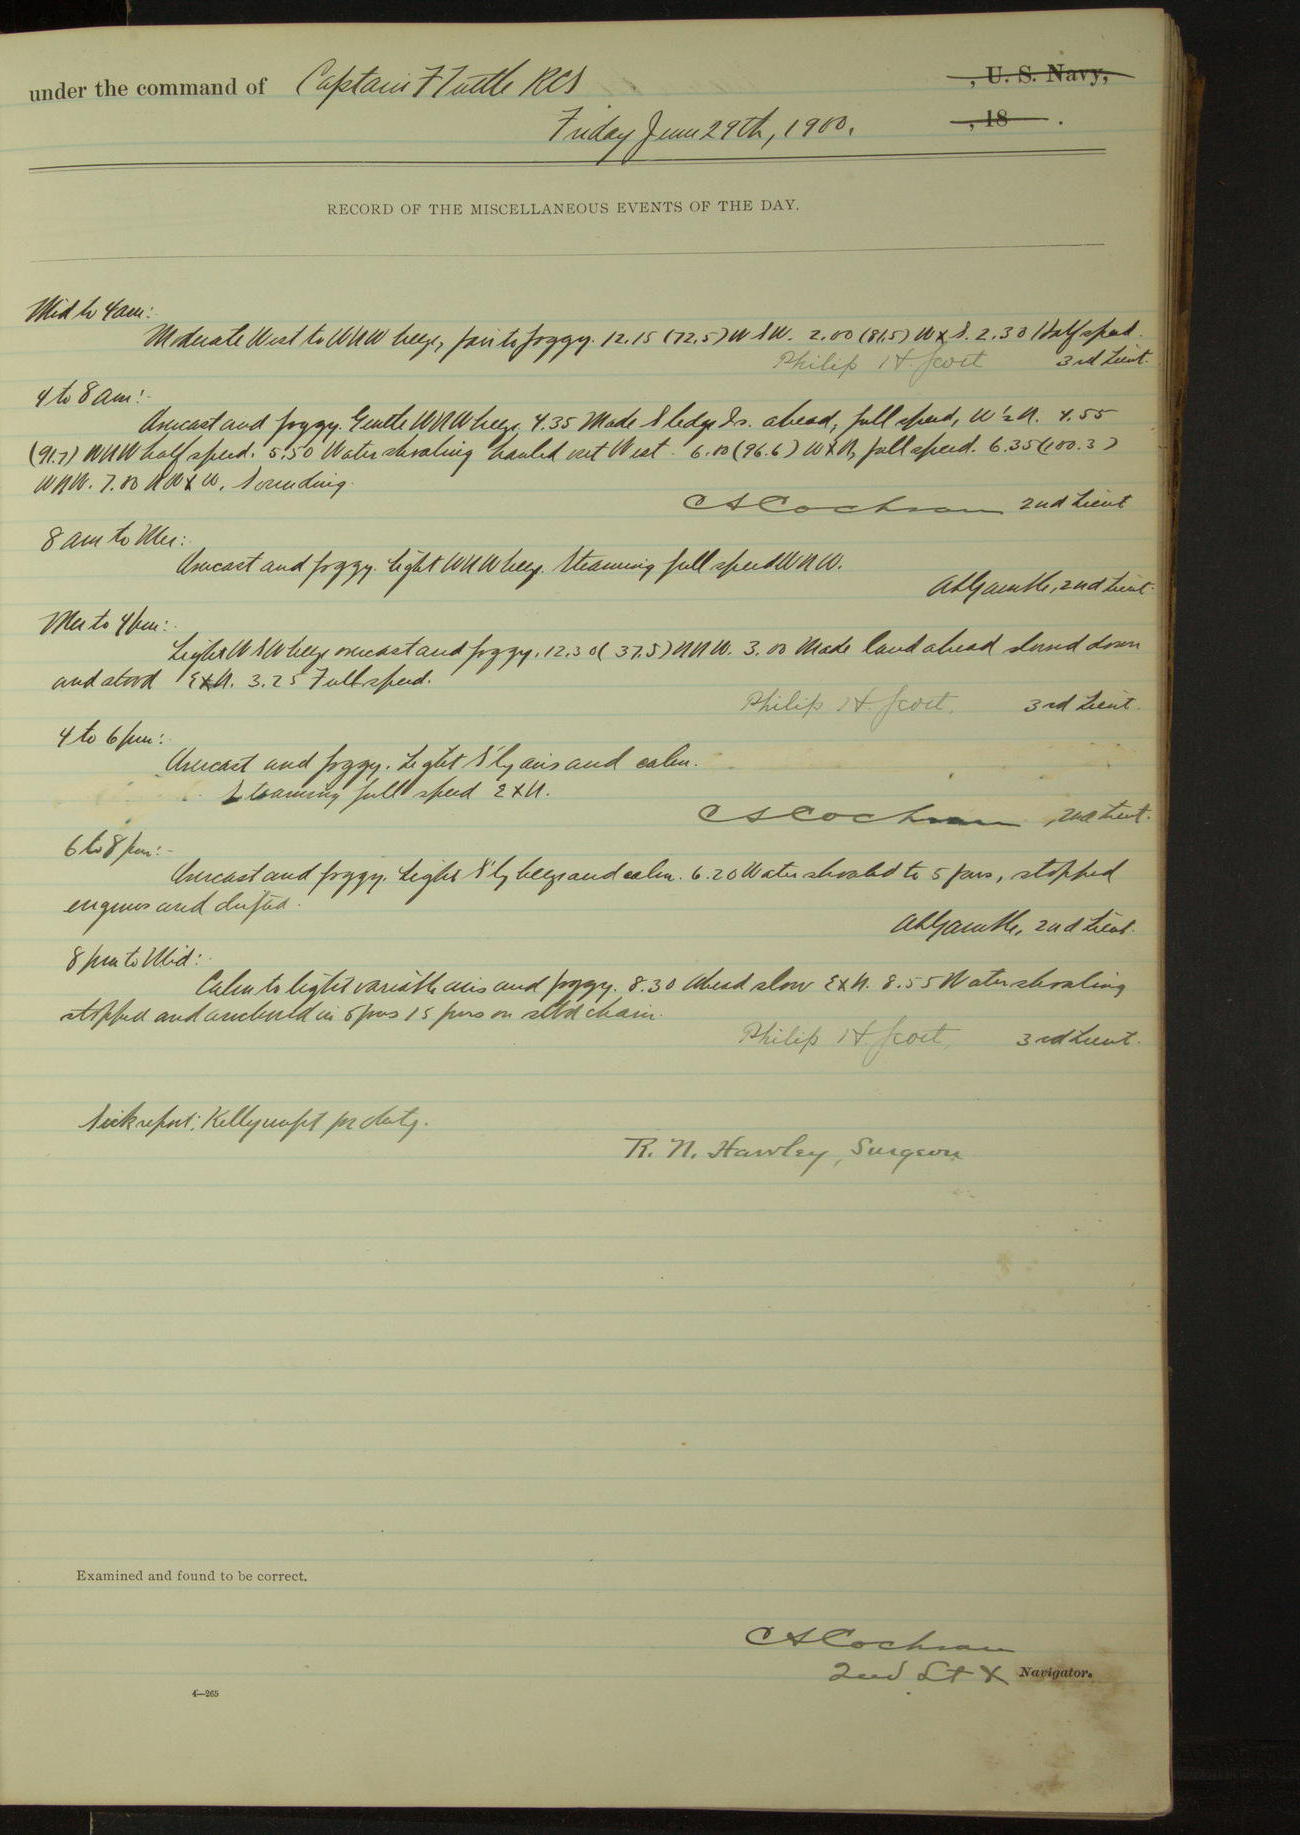 under the command of Captain F Tuttle RCS , U. S. Navy,
Friday June 29th, 1900. , 18 .
RECORD OF THE MISCELLANEOUS EVENTS OF THE DAY.
Mid to 4 am:
Moderate West to WNW breeze, fair to foggy. 12.15 (72.5) WSW. 2.00 (81.5) WxS. 2.30 Half speed.
Philip H. Scott 3rd Lieut.
4 to 8 am:
Overcast and foggy. Gentle WNW breeze. 4.35 Made Sledge Is. ahead, full speed, W½N. 4.55
(91.7) WNW half speed. 5.50 Water shoaling hauled out West. 6.00 (96.6) WxN, full speed. 6.35 (100.3)
WNW. 7.00 NWxW. Sounding.
CS Cochran 2nd Lieut
8 am to Mer:
Overcast and foggy. Light WNW breeze. Steaming full speed WNW.
AL Gamble, 2nd Lieut.
Mer to 4 pm:
Light WSW breeze overcast and foggy. 12.30 (37.5) NNW. 3.00 Made land ahead slowed down
and stood ExN. 3.25 Full speed.
Philip H. Scott. 3rd Lieut.
4 to 6 pm:
Overcast and foggy. Light S'ly airs and calm.
Steaming full speed ExN.
CS Cochran, 2nd Lieut.
6 to 8 pm:
Overcast and foggy. Light S'ly breeze and calm. 6.20 Water shoaled to 5 fms, stopped
engines and drifted.
AL Gamble, 2nd Lieut.
8 pm to Mid:
Calm to light variable airs and foggy. 8.30 Ahead slow ExN. 8.55 Water shoaling
stopped and anchored in 5 fms 15 fms on stbd chain.
Philip H. Scott, 3rd Lieut.
Sick report: Kelly unfit for duty.
R. N. Hawley, Surgeon
Examined and found to be correct.
CS Cochran
2nd Lt X Navigator.
4—265